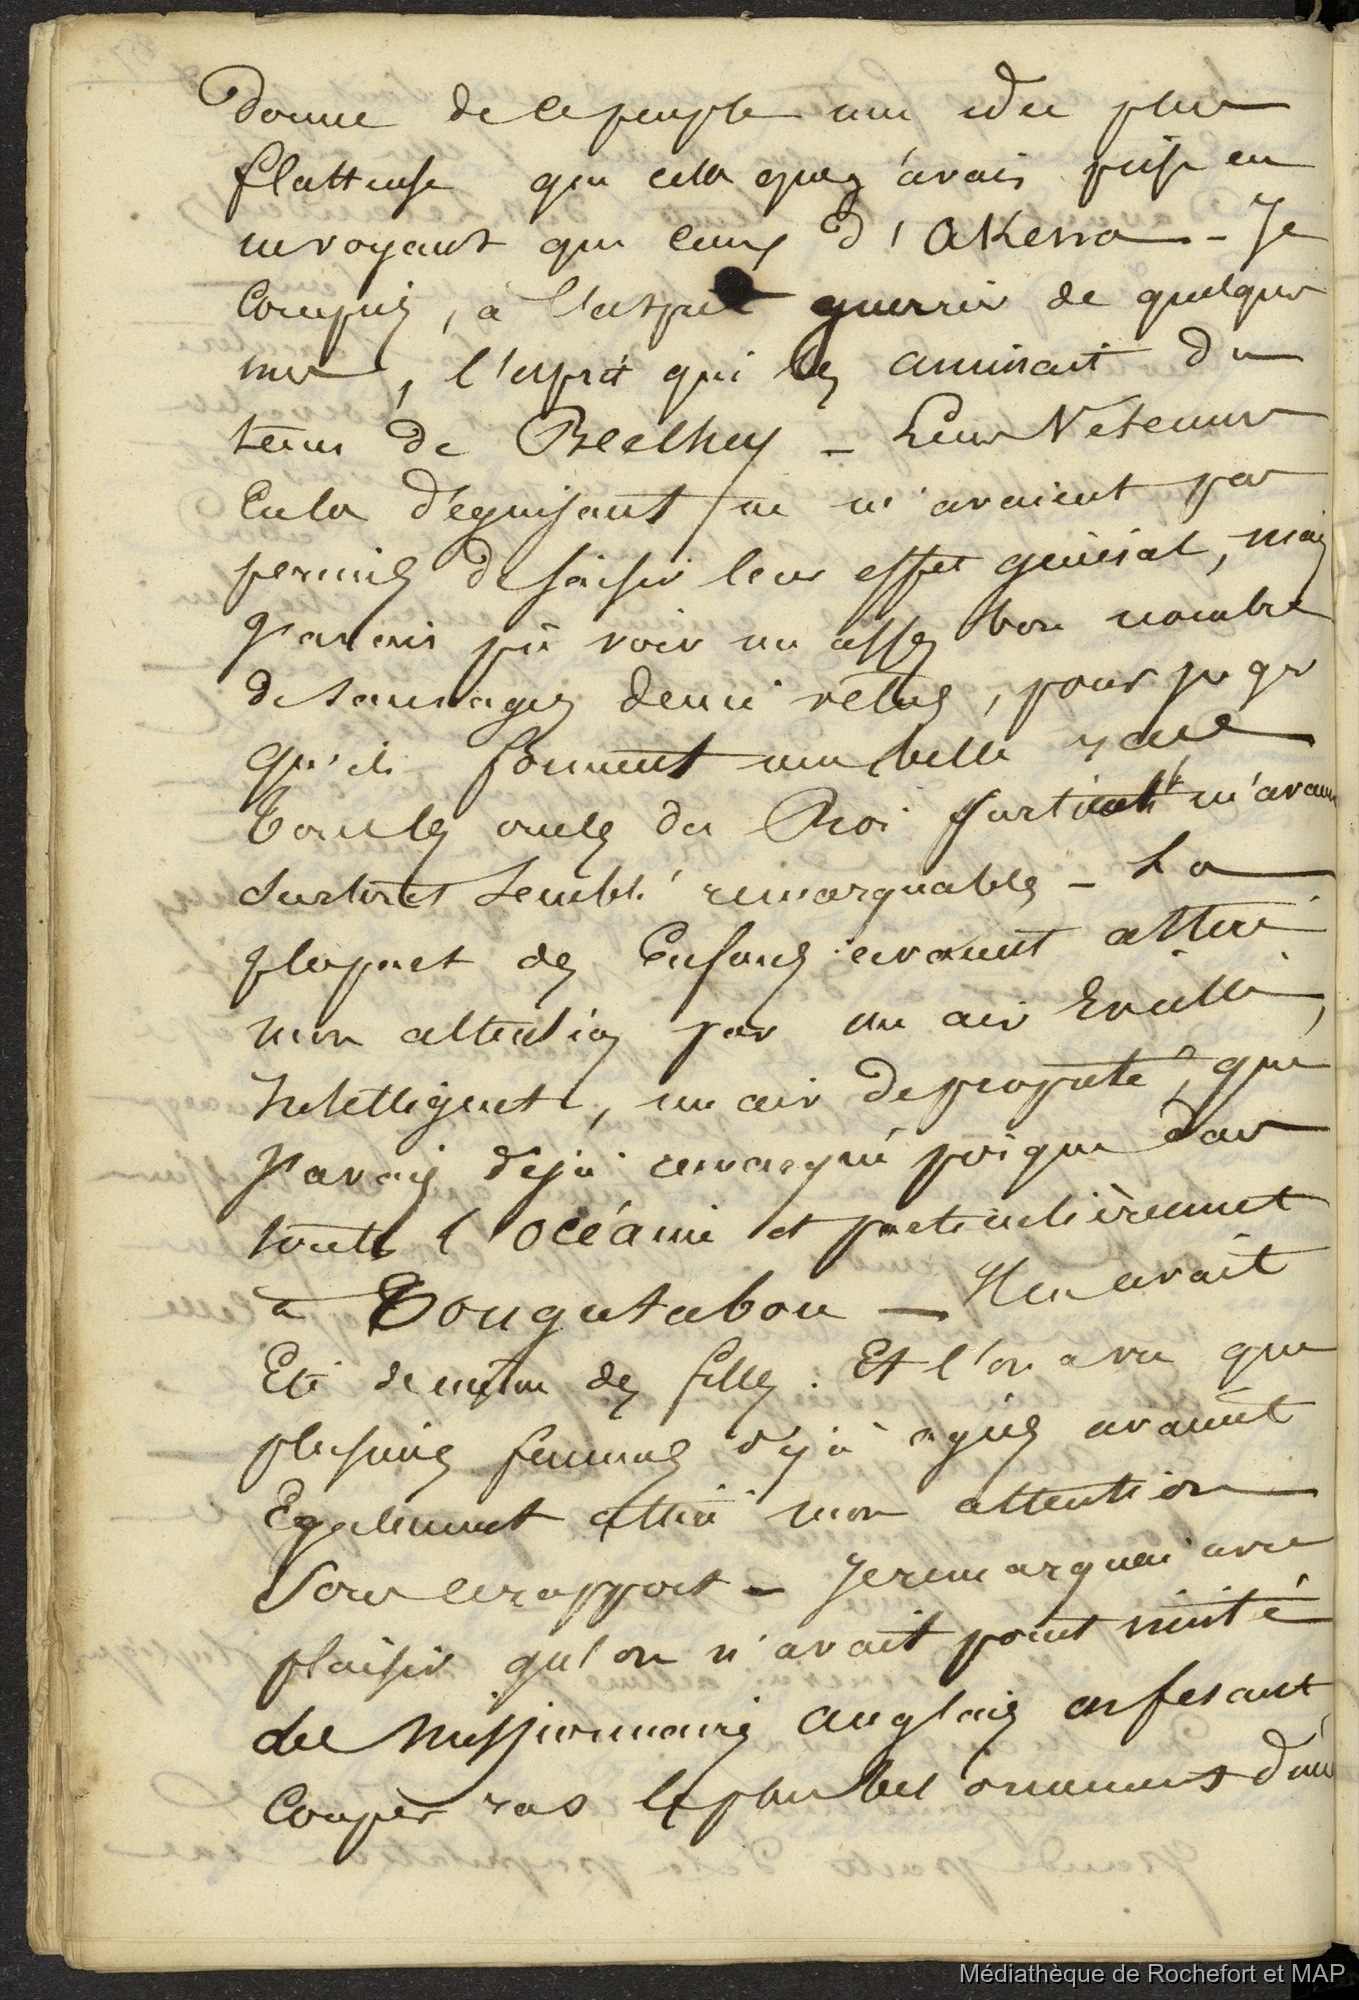 Donne de ce peuple une idée plus
flatteuse que celle que j'avais prise en
ne voyant que ceux d'Akena - Je
Compris, à l'aspect guerrier de quelques
uns, l'esprit qui les animait du
tems de - Leurs Vetemens
En les déguisant ne m'avaient pas
permis de saisir leur effet général, mais
J'avais pû voir un assez bon nombre
de sauvages demi vêtus, pour juger
qu'ils forment une belle race
les oncles du Roi m'avaient
surtout semblé remarquables - La
plupart des Enfans avaient attiré
mon attention par un air Eveillé,
Intelligent, un air de propreté, que
J'avais déjà remarqué presque dans
toute l'Océanie et particulièrement
à Tongatabou - Il en avait
Eté de même des filles. Et l'on a vu que
plusieurs femmes déjà agées avaient
Egalement attiré mon attention
Sous ce rapport - Je remarquai avec
plaisir qu'on n'avait point imité
les Missionnaires anglais en fesant
Couper ras le plus bel ornement d'une
Médiathèque de Rochefort et MAP